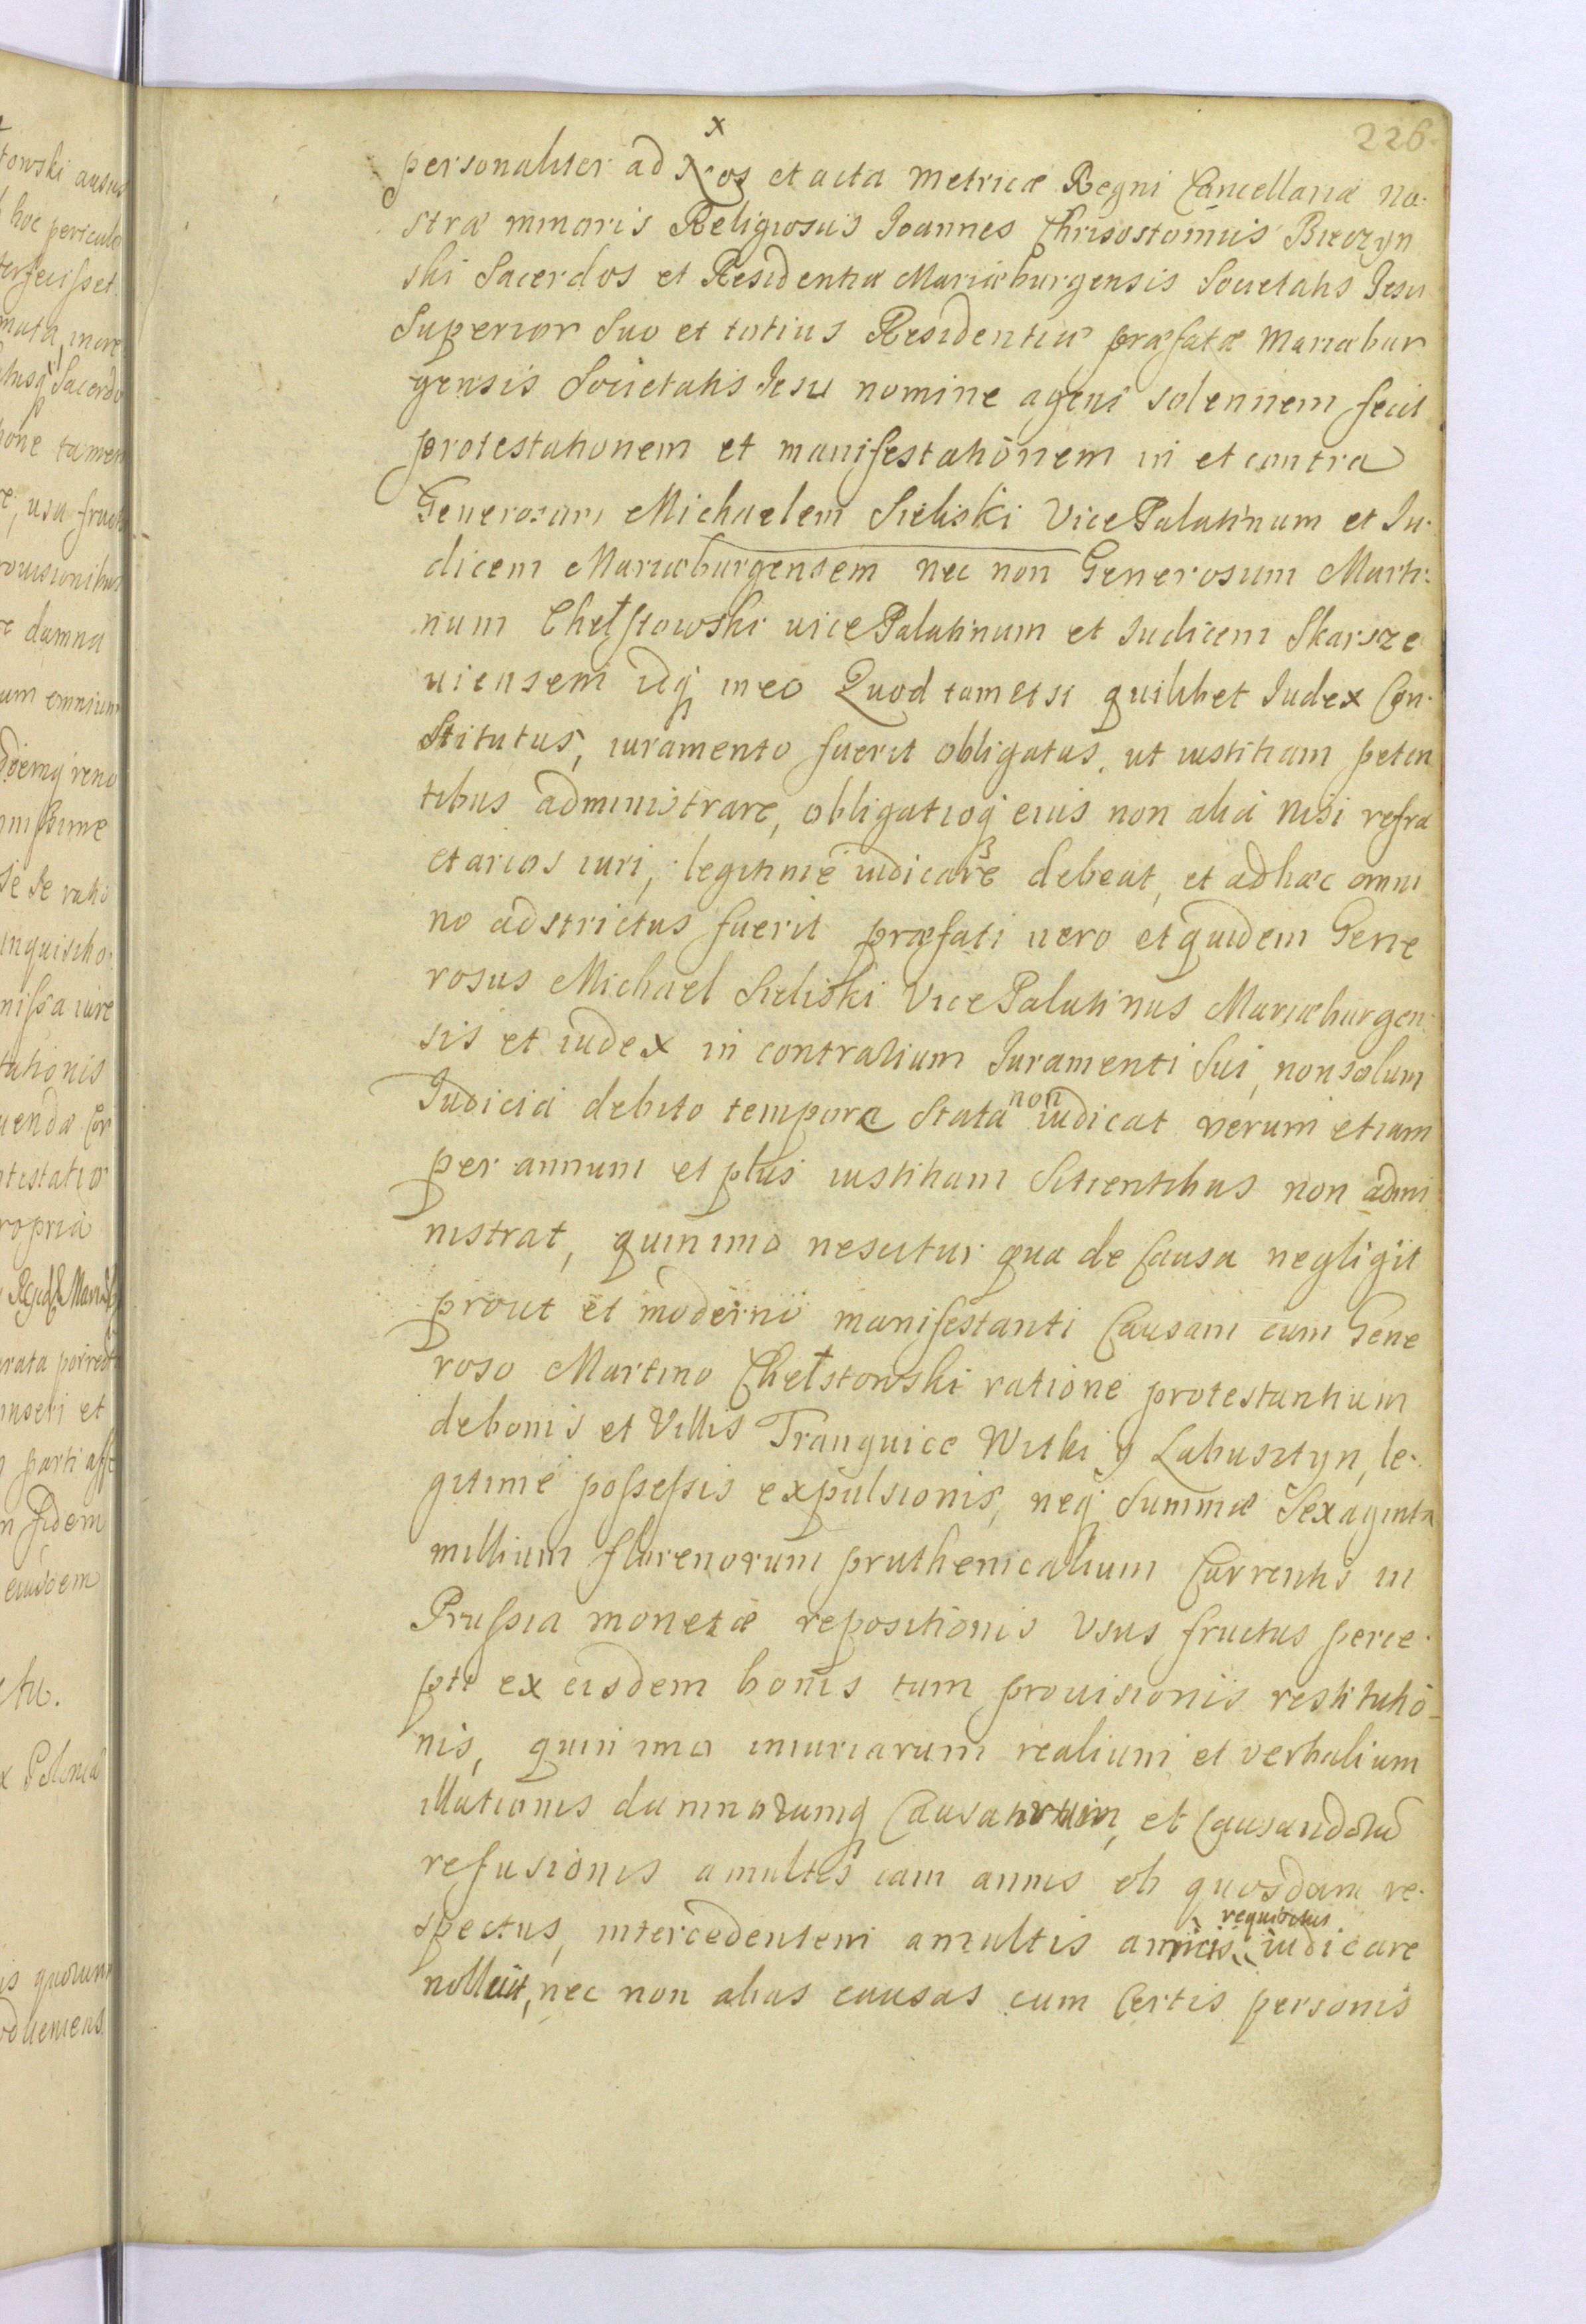 226.
personaliter ad Nos et acta Metricæ Regni Cancellariæ No-
stræ minoris Religiosus Joannes Chrisostomus Bieczyn
ski Sacerdos et Residentiæ Mariæburgensis Societatis Jesu
Superior Suo et totius Residentiæ præfatæ Mariæbur
gensis Societatis Jesu nomine agens solennem fecit
protestationem et manifestationem in et contra
Generosum Michaelem Sieliski Vice Palatinum et Ju-
dicem Mariæburgensem nec non Generosum Marti-
num Chełstowski vice Palatinum et Judicem Skarsze
viensem idq in eo Quod tametsi quilibet Judex Con-
stitutus, iuramento fuerit obligatus, ut iustitiam peten
tibus administrare, obligatioq eius non alia nisi refra
ctarios iuri, legitime iudicare debeat, et ad hæc omni
no adstrictus fuerit præfati vero et quidem Gene
rosus Michael Sieliski Vice Palatinus Mariæburgen
sis et iudex in contrarium Juramenti Sui, non solum
Judicia debito tempore Stata non iudicat verum etiam
per annum et plus iustitiam Sitientibus non admi
nistrat, quin imo nescitur qua de Causa negligit
prout et moderno manifestanti Causam cum Gene
roso Martino Chełstowski ratione protestantium
de bonis et Villis Tranquice Witki y Labusztyn, le-
gitime possessis expulsionis, neq Summæ Sexaginta
millium florenorum pruthenicalium Currentis in
Prussia monetæ repositionis Usus fructus perce-
pti ex eisdem bonis tum provisionis restitutio-
nis, quin imo iniuriarum realium et verbalium
illationis damnorumq Causatorum, et Causandorū
refusionis a multis iam annis ob quosdam re-
spectus, intercedentem a multis amicis requisitus iudicare
nolluit, nec non alias causas cum Certis personis